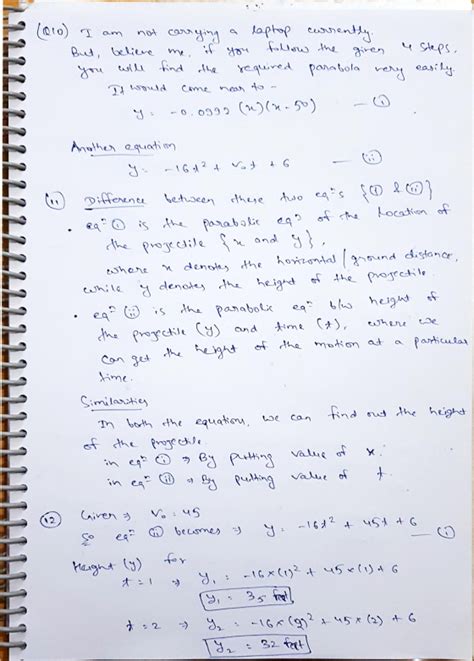 (Q10) I am not carrying a laptop currently.
But, believe me, if you follow the given 4 steps,
you will find the required parabola very easily.
It would come near to -
y = -0.0999 (x)(x-50) — (i)
Another equation
y = -16t² + V₀t + 6 — (ii)
(11) Difference between these two eqⁿs {(i) & (ii)}
• eqⁿ (i) is the parabolic eqⁿ of the location of
the projectile {x and y},
where x denotes the horizontal/ground distance,
while y denotes the height of the projectile.
• eqⁿ (ii) is the parabolic eqⁿ b/w height of
the projectile (y) and time (t), where we
can get the height of the motion at a particular
time.
Similarities
In both the equations, we can find out the height
of the projectile.
in eqⁿ (i) ⇒ By putting value of x.
in eqⁿ (ii) ⇒ By putting value of t.
(12) Given ⇒ V₀ = 45
So eqⁿ (ii) becomes ⇒ y = -16t² + 45t + 6 — (i)
Height (y) for
t = 1 ⇒ y₁ = -16×(1)² + 45×(1) + 6
y₁ = 35 feet
t = 2 ⇒ y₂ = -16×(2)² + 45×(2) + 6
y₂ = 32 feet